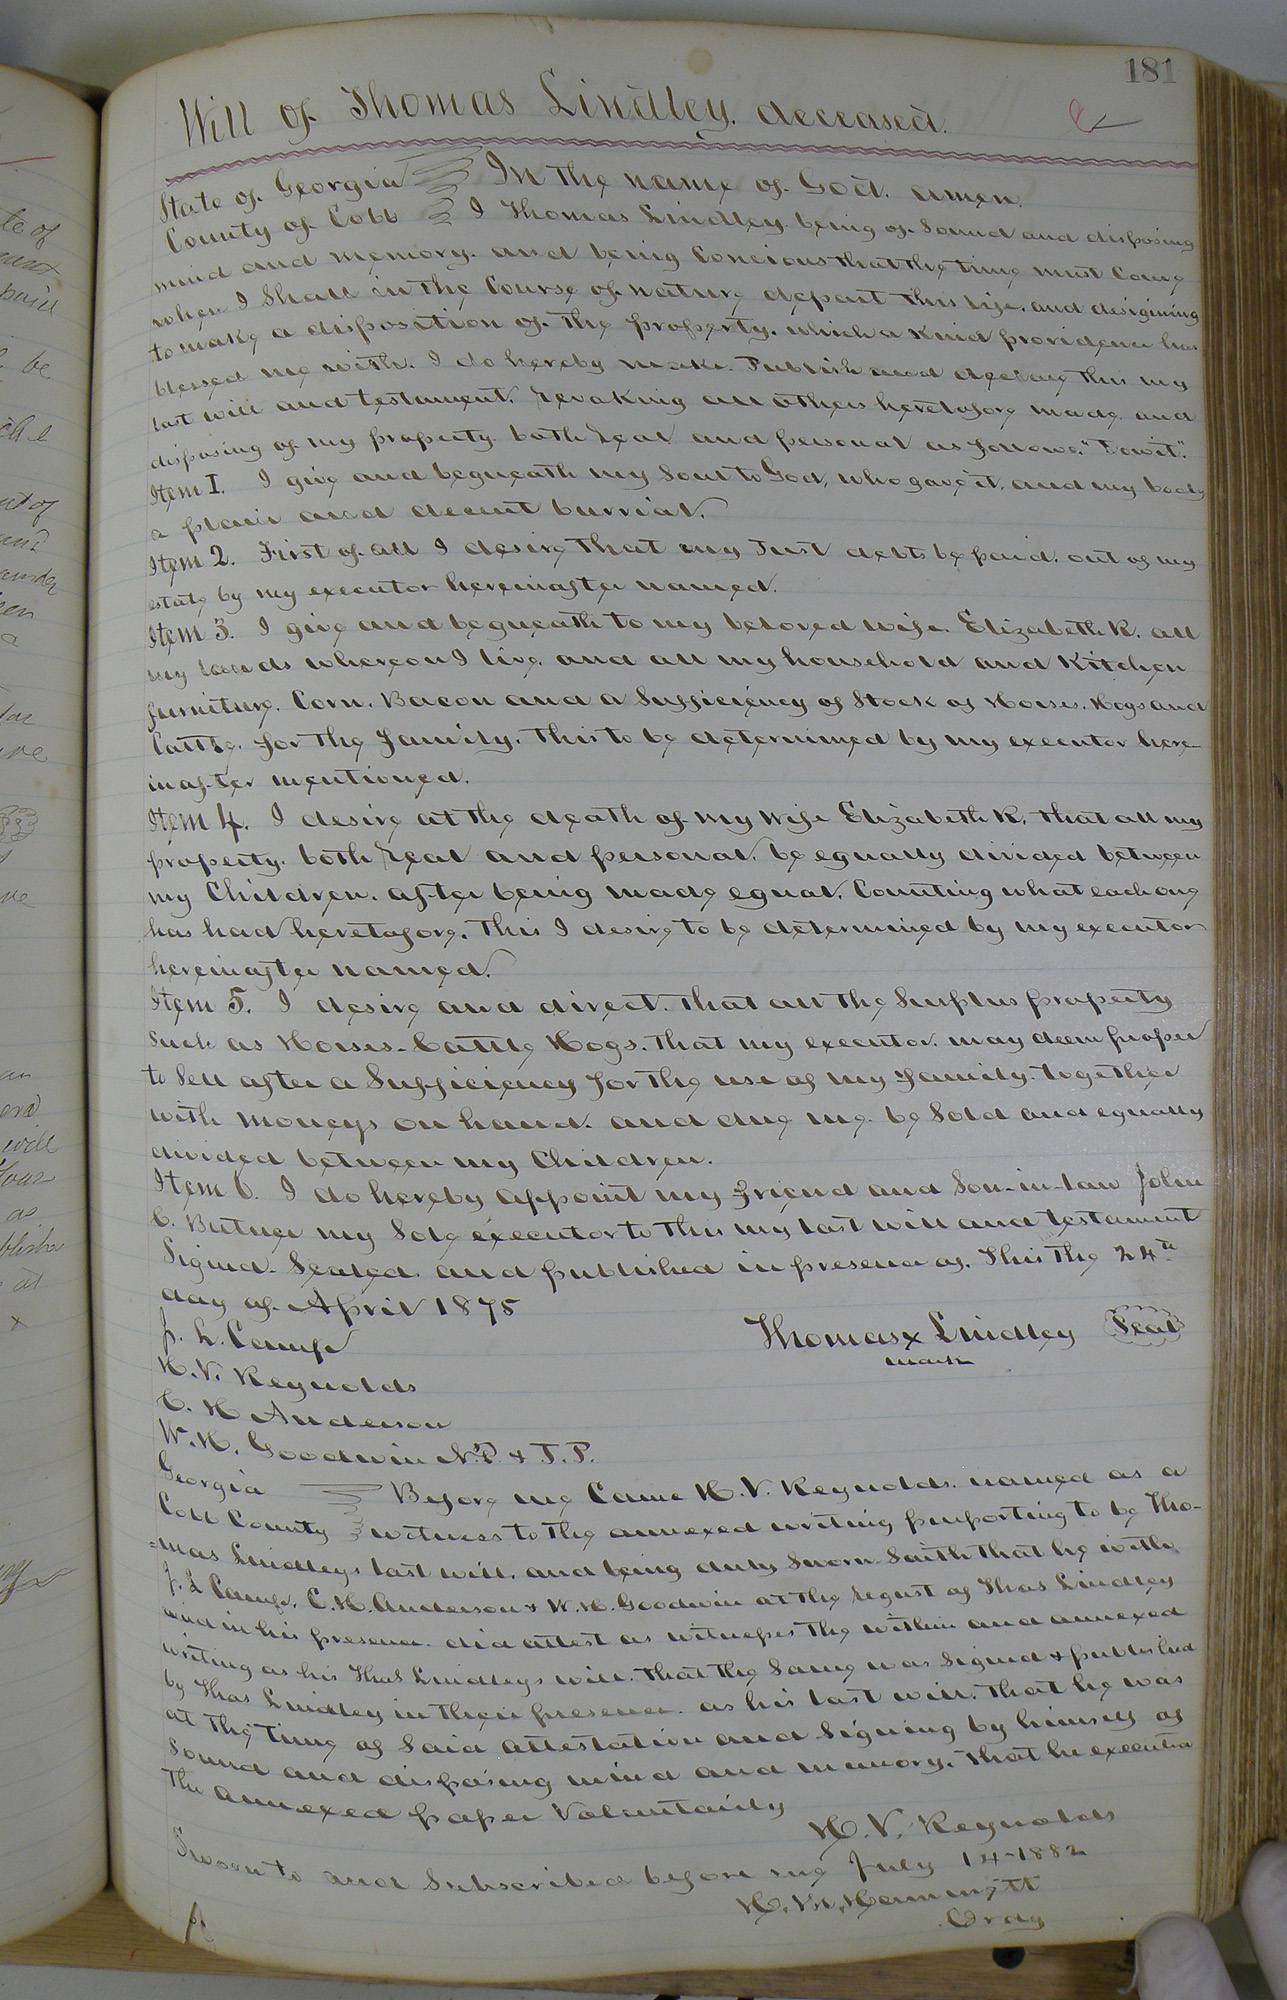 181
Will of Thomas Lindley, deceased.
State of Georgia In the name of God. amen.
County of Cobb I Thomas Lindley being of Sound and disposing
mind and memory. and being Concious that the time must Come
when I Shall in the Course of nature depart this life. and desigining
to make a disposition of the property. which a kind providence has
blessed me with. I do hereby make Publish and declare this my
last will and testament, revoking all others heretofore made and
disposing of my property both real and personal as follows. "Towit".
Item 1. I give and bequeath my Soul to God, who gave it, and my body
a plain and decent burrial.
Item 2. First of all I desire that my Just debts be paid. out of my
estate by my executor hereinafter named.
Item 3. I give and bequeath to my beloved wife. Elizabeth K. all
my lands whereon I live. and all my household and Kitchen
furniture. Corn. Bacon and a Sufficiency of Stock of Horses. Hogs and
Cattle. for the family, this to be determined by my executor here
inafter mentioned.
Item 4. I desire at the death of my wife Elizabeth K, that all my
property. both real and personal. be equally divided between
my Children. after being made equal. Counting what each one
has had heretofore. This I desire to be determined by my executor
hereinafter named.
Item 5. I desire and direct. that all the Surplus property
such as Horses-Cattle Hogs. that my executor. may deem proper
to Sell after a Sufficiency for the use of my family. together
with moneys on hand. and due me. be Sold and equally
divided between my Children.
Item 6. I do hereby appoint my friend and Son-in-law John
C. Butner my Sole executor to this my last will and testament
Signed. Sealed. and published in presence of. This the 24th
day of April 1875
Thomas x Lindley Seal
mark
J. L. Camp
H. V. Reynolds
C. H Anderson
W. H. Goodwin N.P. & J. P.
Georgia Before me Came H. V. Reynolds. named as a
Cobb County witness to the annexed writing purporting to be Tho-
=mas Lindleys last will. and being duly Sworn Saith that he with
J. L Camp. C. H. Anderson & W. H. Goodwin at the request of Thos Lindley
and in his presence. did attest as witnesses the within and annexed
writing as his Thos Lindleys will. that the Same was Signed & published
by Thos Lindley in their presence. as his last will. that he was
at the time of Said attestation and Signing by himself of
Sound and disposing mind and memory. that he executed
the annexed paper Voluntarily
H. V. Reynolds
Sworn to and Subscribed before me July 14-1882
H. M. Hammett
Ordy